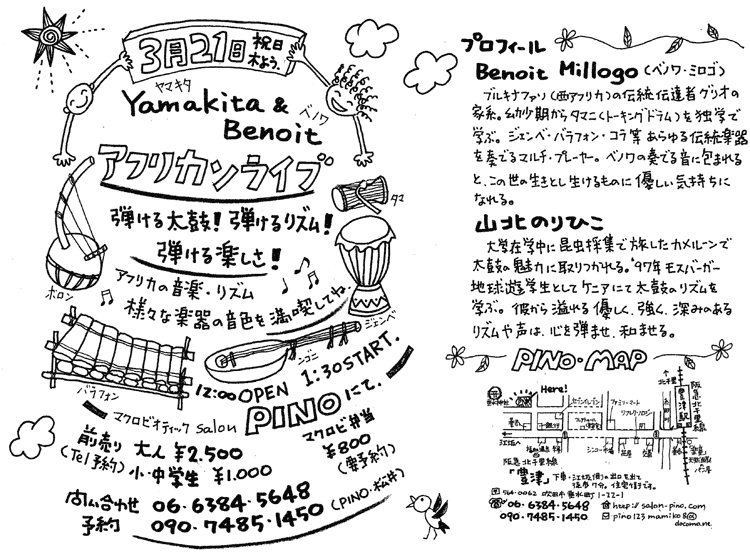 3月21日 祝日 木よう。
ヤマキタ
Yamakita &
ベノワ
Benoit
アフリカンライブ
タマ
弾ける太鼓！弾けるリズム！
弾ける楽しさ！
アフリカの音楽・リズム
様々な楽器の音色を満喫してね。
ボロン
ジェンベ
ンゴニ
バラフォン
12:00 OPEN 1:30 START.
マクロビオティック salon PINOにて。
前売り 大人 ¥2.500
(Tel予約) 小・中学生 ¥1.000
マクロビ弁当
¥800
(要予約)
問い合わせ 06・6384・5648
予約 090・7485・1450 (PINO・松井)
プロフィール
Benoit Millogo (ベノワ・ミロゴ)
ブルキナファソ(西アフリカ)の伝統伝達者グリオの
家系。幼少期からタマニ(トーキングドラム)を独学で
学ぶ。ジェンベ・バラフォン・コラ等あらゆる伝統楽器
を奏でるマルチ・プレーヤー。ベノワの奏でる音に包まれる
と、この世の生きとし生けるものに優しい気持ちに
なれる。
山北のりひこ
大学在学中に昆虫採集で旅したカメルーンで
太鼓の魅力に取りつかれる。'97年モスバーガー
地球遊学生としてケニアにて太鼓のリズムを
学ぶ。彼から溢れる優しく、強く、深みのある
リズムや声は、心を弾ませ、和ませる。
PINO・MAP
Here!
ファミリーマート
北千里
阪急北千里線
豊津駅
江坂へ
阪急北千里線
「豊津」下車・江坂(西)の出口を出て
〒564-0062 吹田市垂水町1-22-1
06・6384・5648 http://salon-pino.com
090・7485・1450 pino123mamiko8@
docomo.ne.